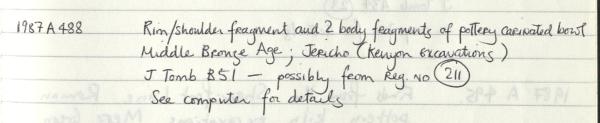 1987 A 488 Rim/shoulder fragment and 2 body fragments of pottery carinated bowl
Middle Bronze Age; Jericho (Kenyon excavations)
J Tomb B51 — possibly from Reg. No 211
See computer for details